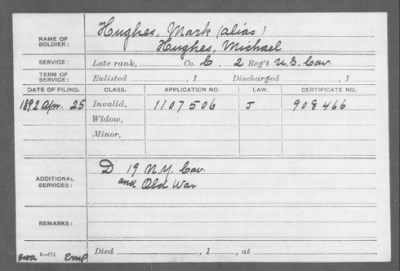 NAME OF SOLDIER: Hughes, Mark (alias)
Hughes, Michael
SERVICE: Late rank, Co. C, 2 Reg't U.S. Cav.
TERM OF SERVICE: Enlisted , 1 Discharged , 1
DATE OF FILING. CLASS. APPLICATION NO. LAW. CERTIFICATE NO.
1892 Apr. 25 Invalid, 1107506 J 908466
Widow,
Minor,
ADDITIONAL SERVICES: D 19 N.Y. Cav.
and Old War
REMARKS:
Died , 1 , at